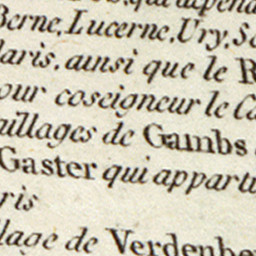 Berne, Lucerne, Ury, S
laris, ainsi que le R
our coseigneur le Ca
aillages de Gambs
Gaster qui apparti
ris
lage de Verdenbe